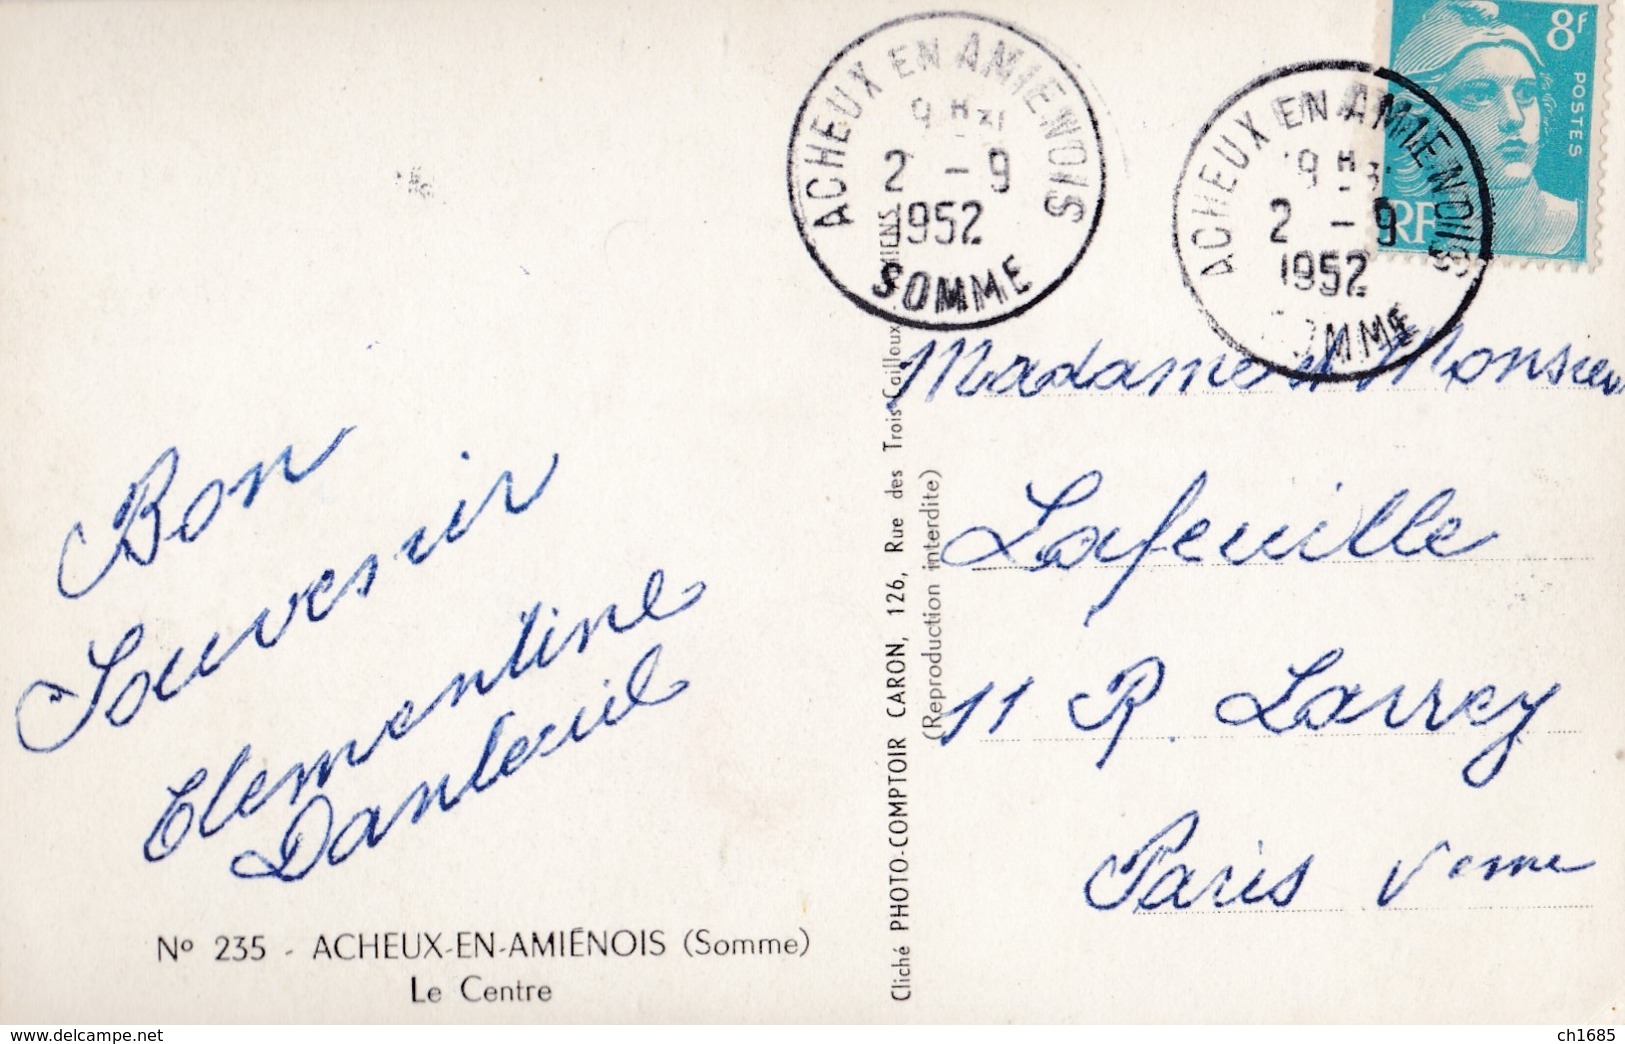 Bon
Souvenir
Clementine
Danteuil
Nº 235 - ACHEUX-EN-AMIÉNOIS (Somme)
Le Centre
Cliché PHOTO-COMPTOIR CARON, 126, Rue des Trois Cailloux, AMIENS
(Reproduction interdite)
ACHEUX EN AMIENOIS
9H
2 - 9
1952
SOMME
ACHEUX EN AMIENOIS
9H
2 - 9
1952
SOMME
8F
POSTES
RF
Madame et Monsieur
Lafeuille
11 R. Larrey
Paris Veme
www.delcampe.net
ch1685